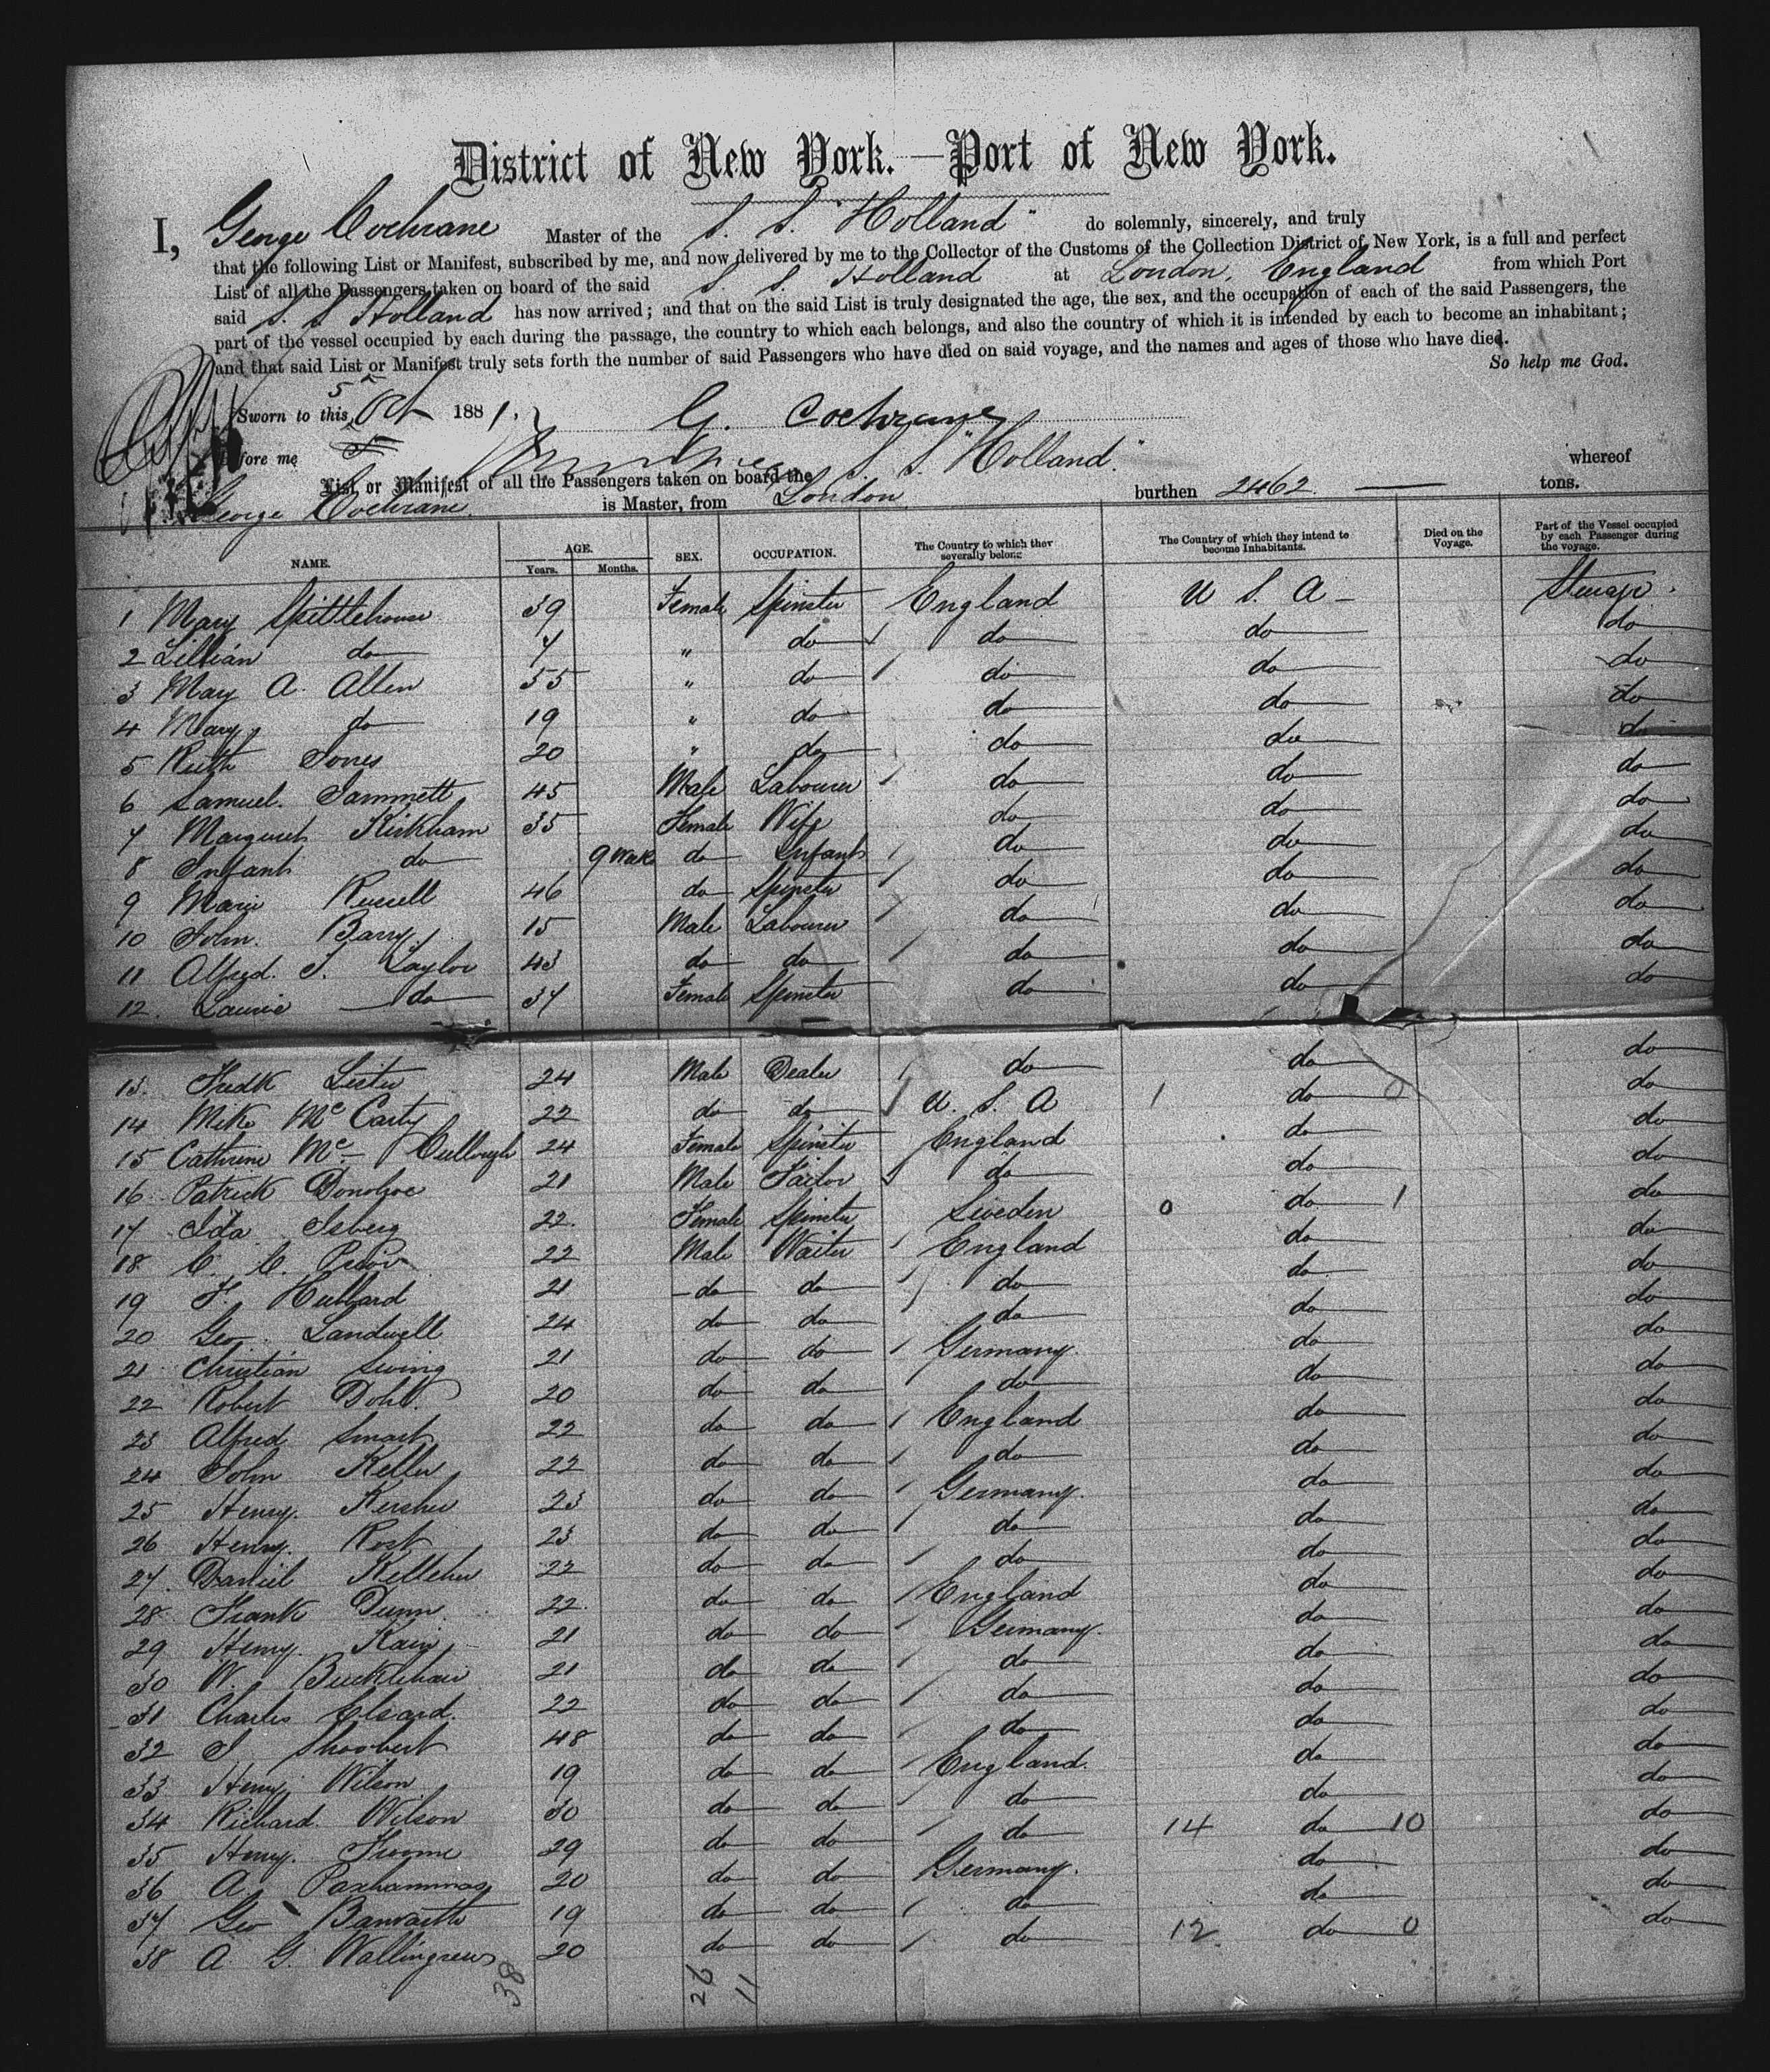 District of New York.—Port of New York.
I, George Cochrane Master of the S. S. "Holland" do solemnly, sincerely, and truly
that the following List or Manifest, subscribed by me, and now delivered by me to the Collector of the Customs of the Collection District of New York, is a full and perfect
List of all the Passengers taken on board of the said S. S. Holland at London, England from which Port
said S. S Holland has now arrived; and that on the said List is truly designated the age, the sex, and the occupation of each of the said Passengers, the
part of the vessel occupied by each during the passage, the country to which each belongs, and also the country of which it is intended by each to become an inhabitant;
and that said List or Manifest truly sets forth the number of said Passengers who have died on said voyage, and the names and ages of those who have died.
So help me God.
Sworn to this 5 Oct 1881. G. Cochrane
before me
List or Manifest of all the Passengers taken on board the S. S. "Holland" whereof
George Cochrane. is Master, from London burthen 2462. tons.
NAME. AGE. Years. Months. SEX. OCCUPATION. The Country to which they severally belong The Country of which they intend to become Inhabitants. Died on the Voyage. Part of the Vessel occupied by each Passenger during the voyage.
1 Mary Spittlehouse 39 Female Spinster England U S. A Steerage.
2 Lillian do 7 " do do do do
3 Mary A. Allen 55 " do do do do
4 Mary do 19 " do do do do
5 Ruth Jones 20 " do do do do
6 Samuel. Sammett 45 Male Labourer do do do
7 Margaret Kirkham 35 Female Wife do do do
8 Infant do 9 Weeks do Infant do do do
9 Maria Russell 46 do Spinster do do do
10 John. Barry 15 Male Labourer do do do
11 Alfred. J. Taylor 43 do do do do do
12. Laurie do 37 Female Spinster do do do
13. Fredk Lister 24 Male Dealer do do do
14 Mike McCarty 22 do do U. S. A 1 do 0 do
15 Cathrine Mc Cullough 24 Female Spinster England do do
16 Patrick Donohoe 21 Male Tailor do do do
17 Ida Isberg 22. Female Spinster Sweden 0 do 1 do
18 C. C. Prior 22 Male Waiter England do do
19 F. Hubbard 21 do do do do do
20 Geo. Landwell 24 do do do do do
21 Christian Swing 21 do do Germany. do do
22 Robert Dohl. 20 do do do do do
23 Alfred Smart 22 do do England do do
24 John Keller 22 do do do do do
25 Henry. Kersher 23 do do Germany. do do
26 Henry. Rost 23 do do do do do
27. Daniel Kelleher 22 do do do do do
28 Frank Dunn 22. do do England do do
29 Henry. Kain 21 do do Germany do do
30 W. 21 do do do do do
31 Charles 22 do do do do do
32 J Shoobert 48 do do do do do
33 Henry Wilson 19 do do England. do do
34 Richard. Wilson 30 do do do do do
35 Henry. Froome 29 do do do 14 do 10 do
36 A. 20 do do Germany. do do
37 Geo Banwarth 19 do do do do do
38 A. G. 20 do do do 12. do 0 do
38 26 11